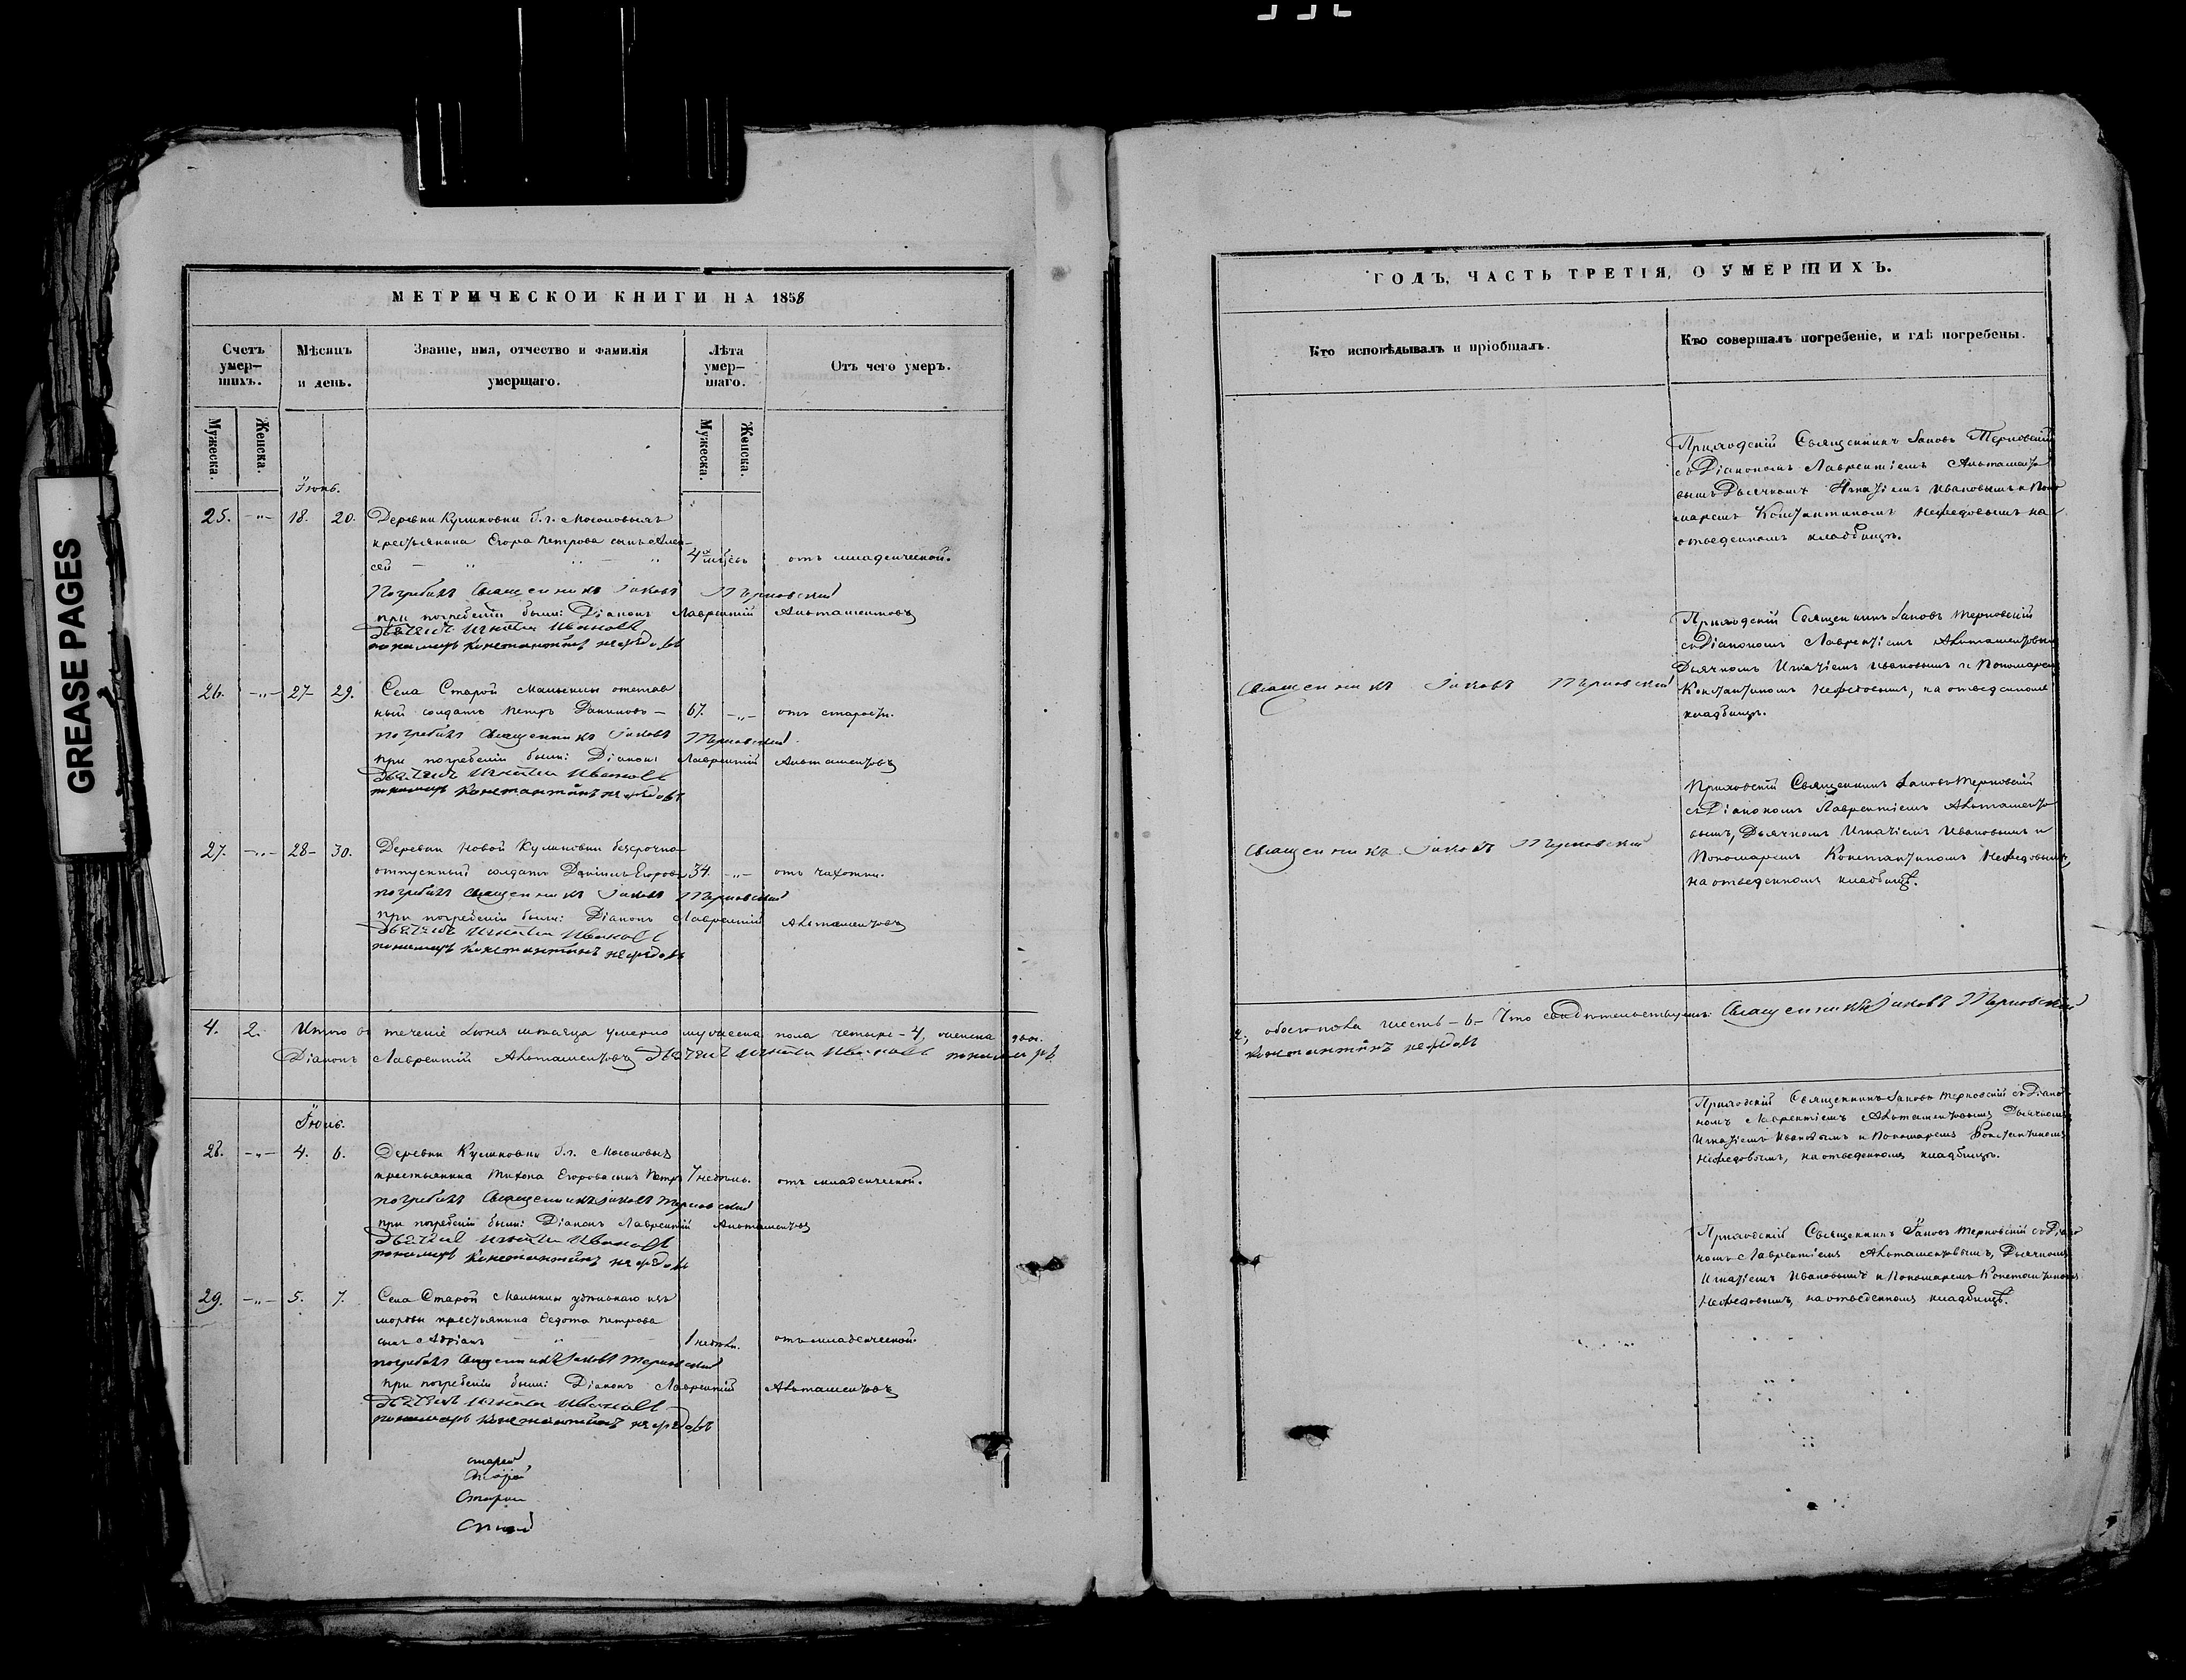 GREASE PAGES
МЕТРИЧЕСКОЙ КНИГИ НА 1858
Счетъ умер-шихъ.
Мѣсяцъ и день.
Званіе, имя, отчество и фамилія умершаго.
Лѣта умер-шаго.
Отъ чего умеръ.
Мужеска.
Женска.
Мужеска.
Женска.
Іюнь.
25. -"- 18. 20. Деревни Куликовки Г.г. Мосоловыхъ
крестьянина Егора Петрова сынъ Алек-
сей 4хъ мѣсяц. отъ младенческой.
Погребалъ Священникъ Іаковъ Терновскій
при погребеніи были: Діаконъ Лаврентій Альташевтовъ
Дьячекъ Игнатій Ивановъ
пономарь Константинъ Нефедовъ
26. -"- 27- 29. Села Старой отстав
ный солдатъ Петръ Даниловъ - 67. -"- отъ старости.
погребалъ Священникъ Іаковъ Терновскій
при погребеніи были: Діаконъ Лаврентій
Дьячекъ Игнатій Ивановъ
пономарь Константинъ Нефедовъ
27. -"- 28- 30. Деревни Новой Куликовки безсрочно-
отпускный солдатъ Даніилъ Егоровъ 34. -"- отъ чахотки.
погребалъ Священникъ Іаковъ Терновскій
при погребеніи были: Діаконъ Лаврентій
Дьячекъ Игнатій Ивановъ
пономарь Константинъ Нефедовъ
4. 2. Итого въ теченіе Іюня мѣсяца умерло мужеска пола четыре - 4, женска два.
Діаконъ Лаврентій Дьячекъ Игнатій Ивановъ пономарь
Іюль.
28. -"- 4. 6. Деревни Куликовки Г.г. Мосоловыхъ
крестьянина Тихона Егорова сынъ Петръ 7 недѣль. отъ младенческой.
погребалъ Священникъ Іаковъ Терновскій
при погребеніи были: Діаконъ Лаврентій
Дьячекъ Игнатій Ивановъ
пономарь Константинъ Нефедовъ
29. -"- 5. 7. Села Старой удѣльнаго изъ
мордвы крестьянина Федота Петрова
сынъ Адріанъ 1 недѣли. отъ младенческой.
погребалъ Священникъ Іаковъ Терновскій
при погребеніи были: Діаконъ Лаврентій
Дьячекъ Игнатій Ивановъ
пономарь Константинъ Нефедовъ
старой
Старои
ГОДЪ, ЧАСТЬ ТРЕТІЯ, О УМЕРШИХЪ.
Кто исповѣдывалъ и пріобщалъ.
Кто совершалъ погребеніе, и гдѣ погребены.
Приходскій Священникъ Іаковъ Терновскій
съ Діакономъ Лаврентіемъ
вымъ Дьячкомъ Игнатіемъ Ивановымъ и Поно
маремъ Константиномъ Нефедовымъ на
отведенномъ кладбищѣ.
Священникъ Іаковъ Терновскій
Приходскій Священникъ Іаковъ Терновскій
съ Діакономъ Лаврентіемъ
Дьячкомъ Игнатіемъ Ивановымъ и Пономаремъ
Константиномъ Нефедовымъ, на отведенномъ
кладбищѣ.
Священникъ Іаковъ Терновскій
Приходскій Священникъ Іаковъ Терновскій
съ Діакономъ Лаврентіемъ
вымъ, Дьячкомъ Игнатіемъ Ивановымъ и
Пономаремъ Константиномъ Нефедовымъ,
на отведенномъ кладбищѣ.
2, обоего пола шесть - 6 - Что свидѣтельствуемъ: Священникъ Іаковъ Терновскій
Константинъ Нефедовъ
Приходскій Священникъ Іаковъ Терновскій съ Діако
номъ Лаврентіемъ Дьячкомъ
Игнатіемъ Ивановымъ и Пономаремъ Константиномъ
Нефедовымъ, на отведенномъ кладбищѣ.
Приходскій Священникъ Іаковъ Терновскій съ Діако
номъ Лаврентіемъ Дьячкомъ
Игнатіемъ Ивановымъ и Пономаремъ Константиномъ
Нефедовымъ, на отведенномъ кладбищѣ.